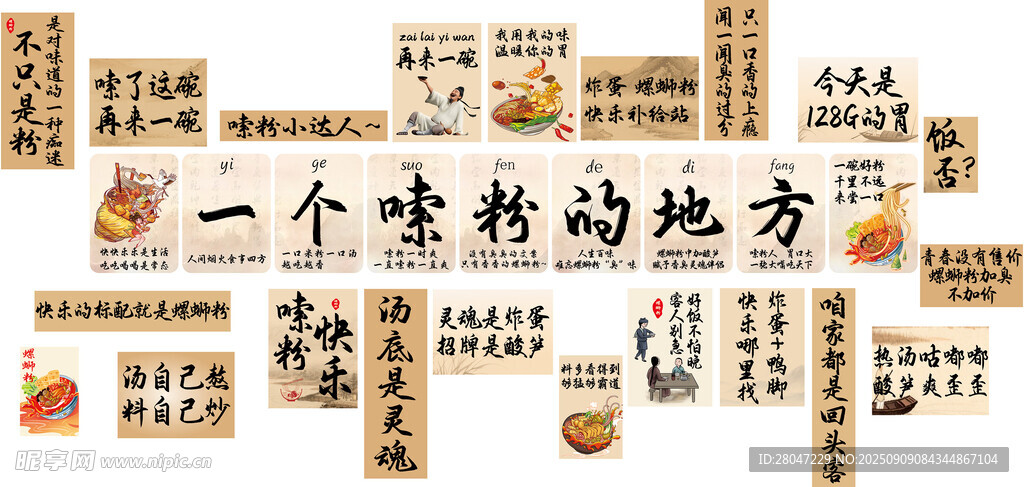 是对味道的一种痴迷
不只是粉
嗦了这碗
再来一碗
嗦粉小达人~
zai lai yi wan
再来一碗
我用我的味
温暖你的胃
炸蛋 螺蛳粉
快乐补给站
只一口香的上瘾
闻一闻臭的过分
今天是
128G的胃
饭
否?
快快乐乐是生活
吃吃喝喝是常态
yi
一
人间烟火食事四方
ge
个
一口米粉一口汤
越吃越香
suo
嗦
一直嗦粉一时爽
一直嗦粉一直爽
fen
粉
没有臭臭的文案
只有香香的螺蛳粉~
de
的
人生百味
难忘螺蛳粉“臭”味
di
地
螺蛳粉中加酸笋
赋予香臭灵魂伴侣
fang
方
嗦粉人 胃口大
一碗大嘴吃天下
一碗好粉
千里不远
来尝一口
青春没有售价
螺蛳粉加臭
不加价
快乐的标配就是螺蛳粉
螺蛳粉
汤自己熬
料自己炒
快乐
嗦粉
汤底是灵魂
灵魂是炸蛋
招牌是酸笋
料多看得到
够猛够霸道
好饭不怕晚
客人别急
炸蛋+鸭脚
快乐哪里找
咱家都是回头客
热汤咕嘟嘟
酸笋爽歪歪
昵享网 www.nipic.cn
ID:28047229 NO:20250909084344867104